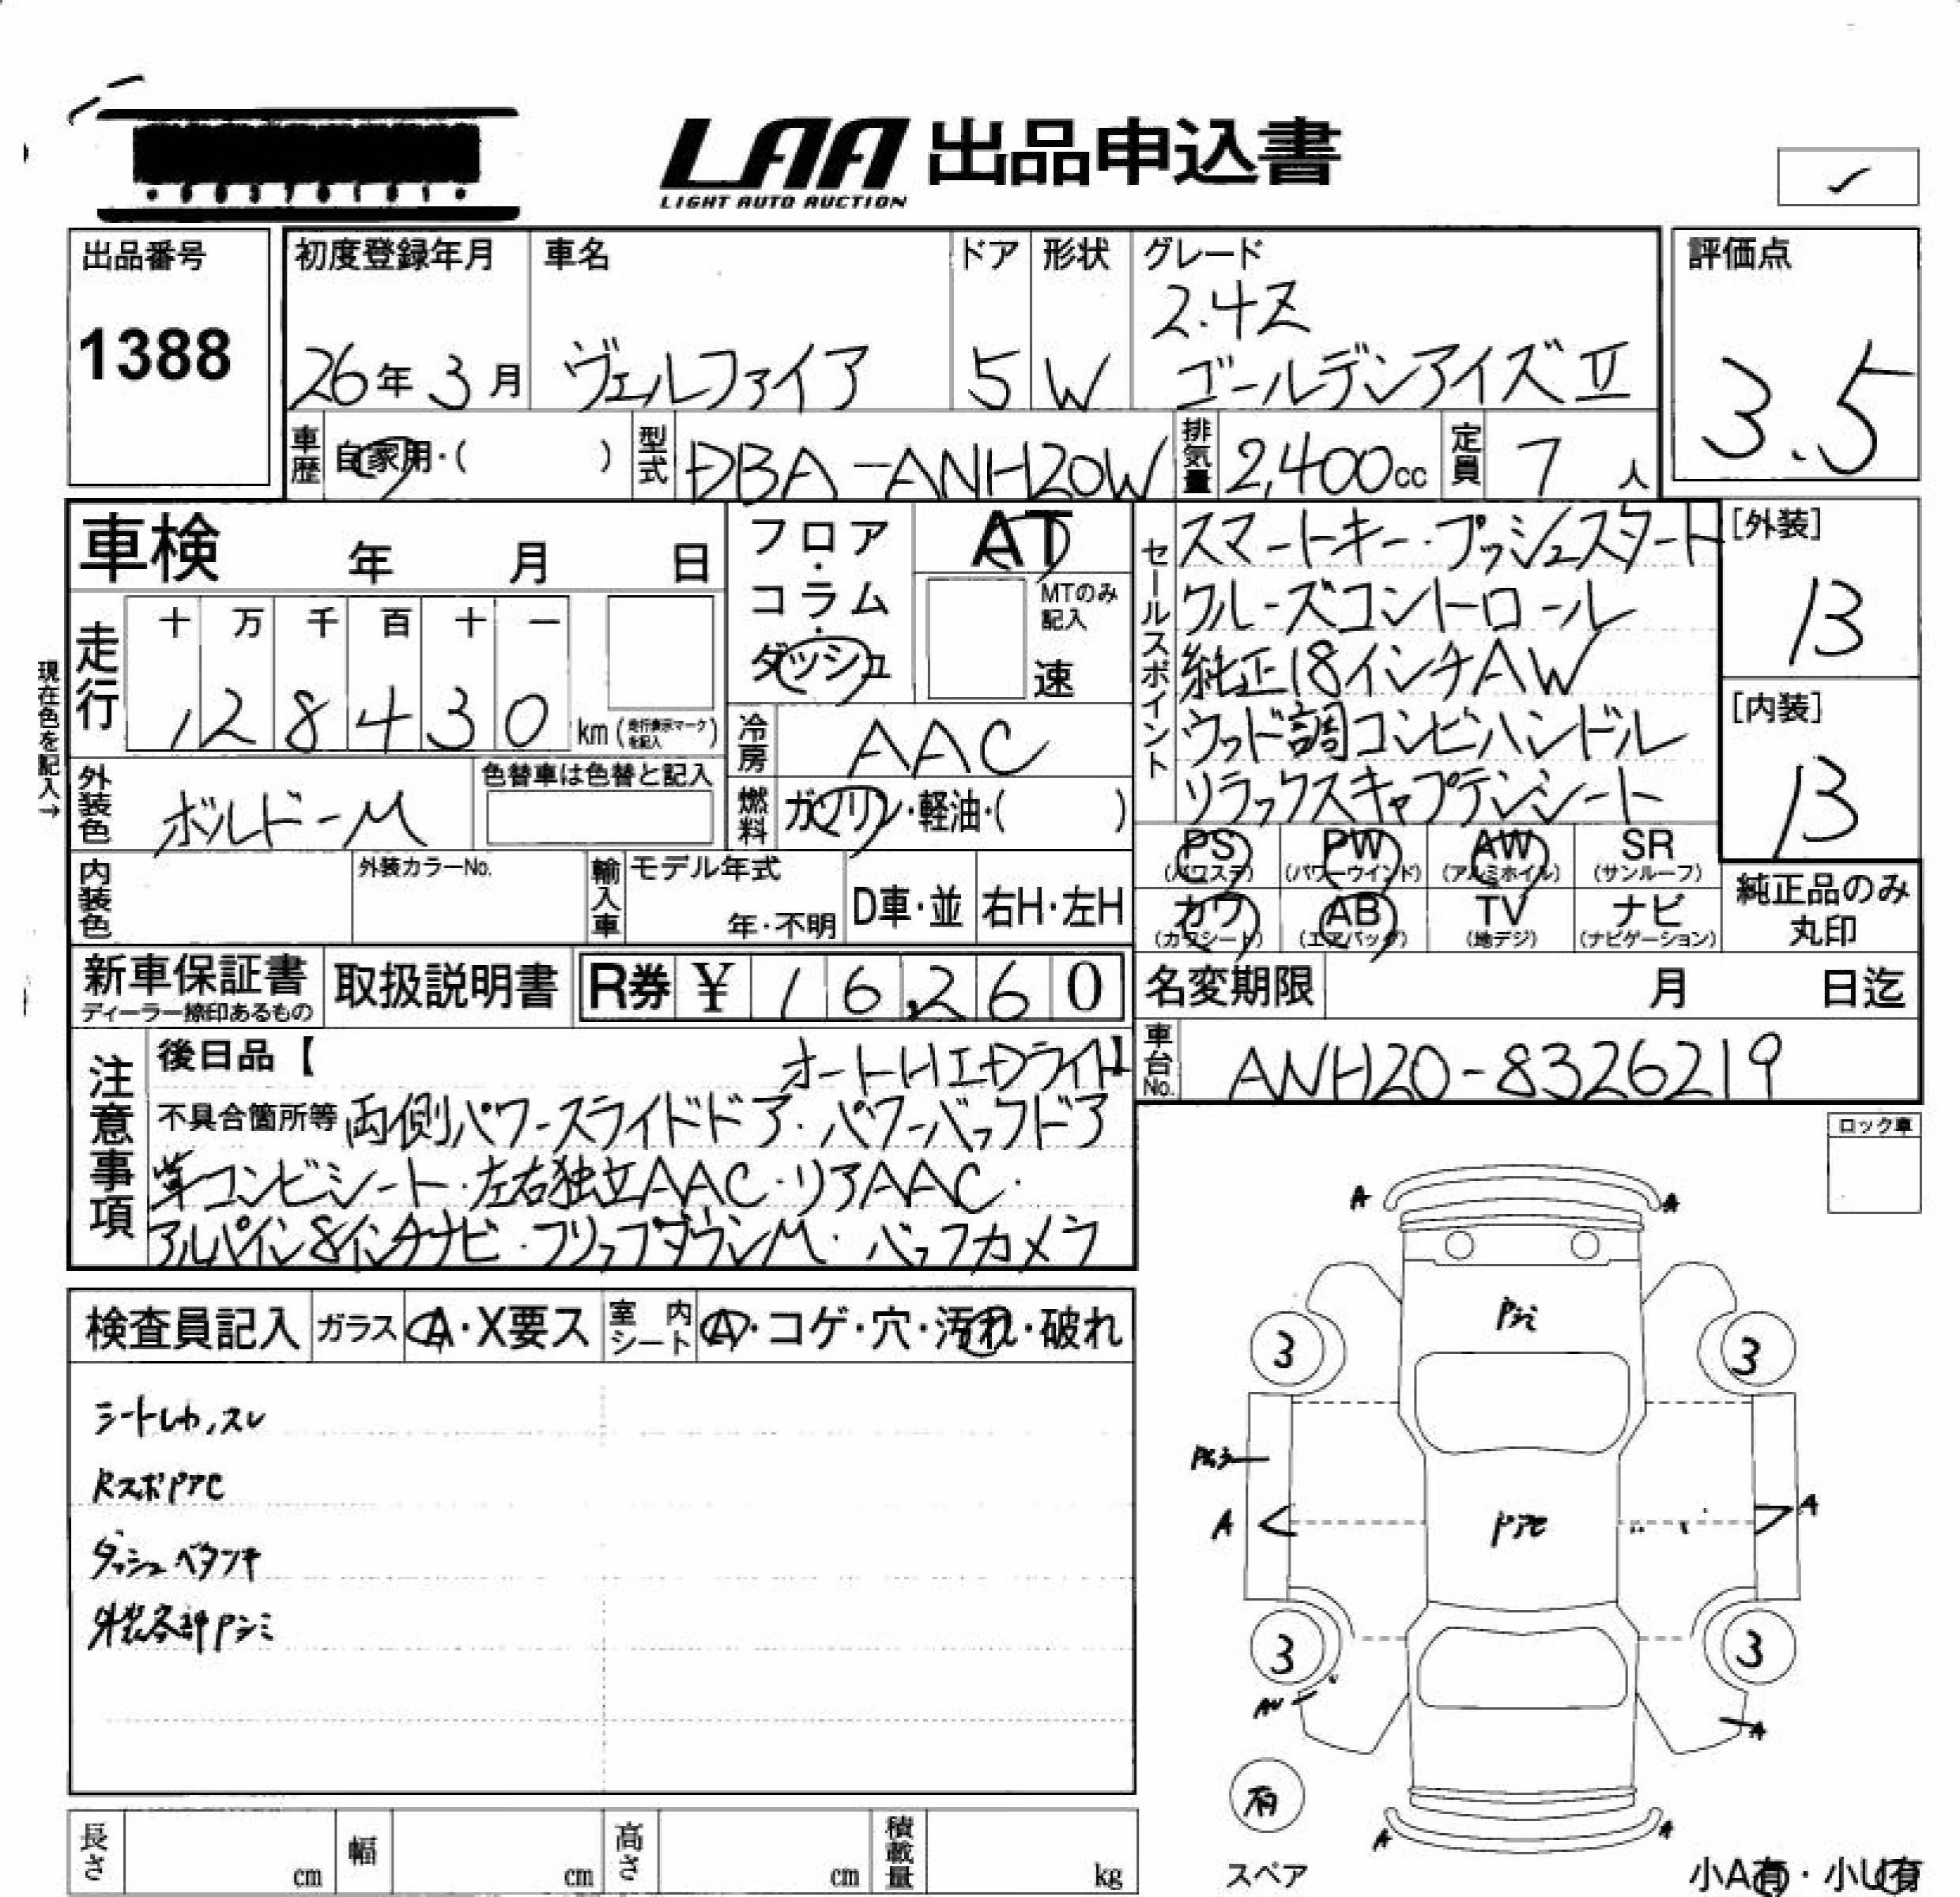 LAA 出品申込書
LIGHT AUTO AUCTION
出品番号
1388
初度登録年月
26年3月
車名
ヴェルファイア
ドア
5
形状
W
グレード
2.4Z
ゴールデンアイズⅡ
評価点
3.5
車歴 自家用・( )
型式 DBA-ANH20W
排気量 2,400cc
定員 7人
車検 年 月 日
フロア・コラム・ダッシュ
AT
MTのみ記入
速
現在色を記入→
走行
十 万 千 百 十 一
128430 km(走行表示マークを記入)
冷房 AAC
燃料 ガソリン・軽油・( )
外装色 ボルドーM
色替車は色替と記入
内装色
外装カラーNo.
輸入車
モデル年式
年・不明
D車・並
右H・左H
セールスポイント
スマートキー・プッシュスタート
クルーズコントロール
純正18インチAW
ウッド調コンビハンドル
リラックスキャプテンシート
[外装]
B
[内装]
B
PS PW AW SR
(パワステ) (パワーウインド) (アルミホイル) (サンルーフ)
カワ AB TV ナビ
(カワシート) (エアバッグ) (地デジ) (ナビゲーション)
純正品のみ
丸印
新車保証書
ディーラー捺印あるもの
取扱説明書
R券 ¥16,260
名変期限 月 日迄
車台No. ANH20-8326219
注意事項
後日品【 】
オートHIDライト
不具合箇所等 両側パワースライドドア・パワーバックドア
革コンビシート・左右独立AAC・リアAAC・
アルパイン8インチナビ・フリップダウンM・バックカメラ
ロック車
検査員記入
ガラス A・X要ス
室内シート A・コゲ・穴・汚れ・破れ
シートしわ,スレ
RスポPアセ
ダッシュベタツキ
外装各部Pシミ
A A
Pシミ
3 3
A A
Pアセ
3 3
A
有
スペア
A A
小A有・小U有
長さ cm
幅 cm
高さ cm
積載量 kg